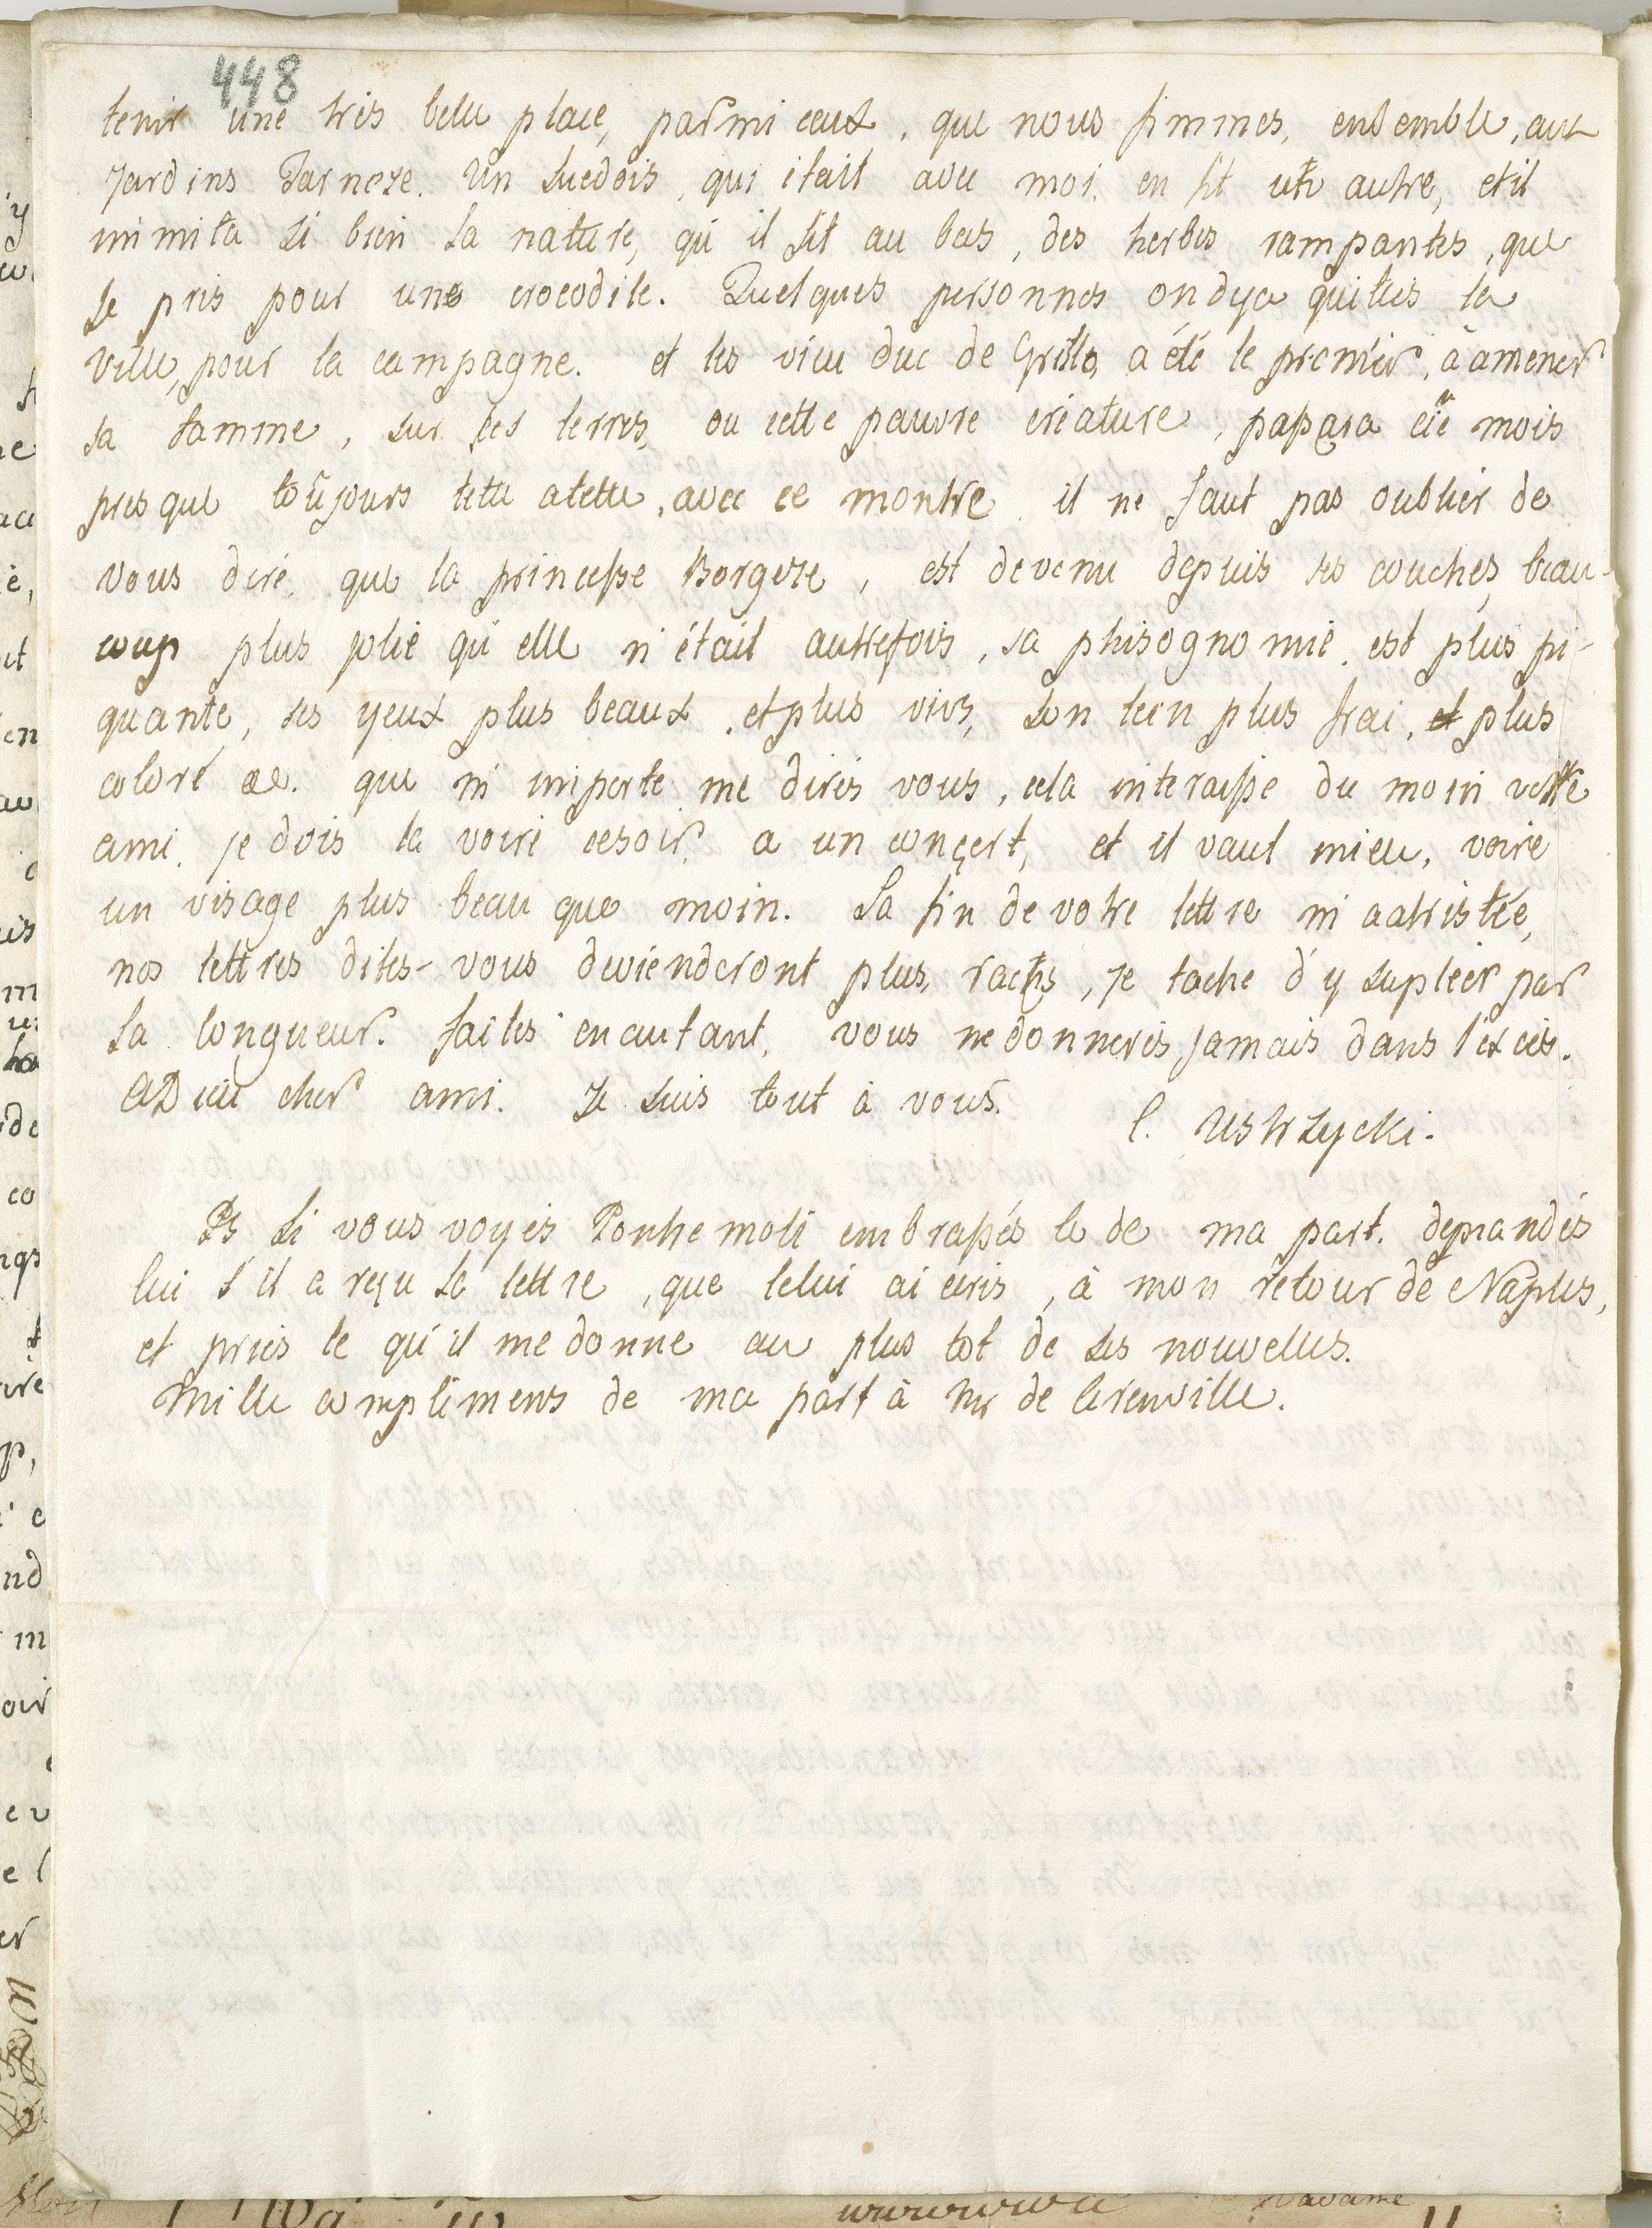 448
tenir une tres belle place, parmi ceux, que nous fimmes, ensemble, aux
Jardins Farnese. Un Suedois, qui etait avec moi, en fit un autre, et il
immita si bien la nature, qu'il fit au bas, des herbes rampantes, que
je pris pour une crocodile. Quelques personnes ond ya quittés la
ville, pour la campagne. et les vieu duc de Grillo, a été le premier, à amener
sa famme, sur ses terres, ou cette pauvre créature, mois
presque toûjours tette atette, avec ce montre. il ne faut pas oublier de
vous dire, que la princesse Borgese, est devenu depuis ses couches, beau-
coup plus jolie qu'elle n'était autrefois, sa phisognomie, est plus pi-
quante, ses yeux plus beaux, et plus vivs, son tein plus frai, et plus
coloré &c. que m'importe me dirés vous, cela interaisse du moin votre
ami. je dois la voire cesoir, a un conçert, et il vaut mieu, voire
un visage plus beau que moin. La fin de votre lettre m'aatristée,
nos lettres dites-vous deviendcront plus, rares, je tache d'y supléer par
la longueur. faites en autant, vous ne donnerés jamais dans l'exces.
ADieu cher ami. Je suis tout à vous.
C. Ustrzycki.
Ps, Si vous voyés Pontremoli embrassés le de ma part. demandés
lui s'il a reçu la lettre, que lelui ai ecris, à mon retour de Naples,
et priés le qu'il me donne au plus tot de ses nouvelles.
Mille complimens de ma part à Mr de